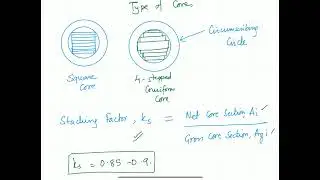 Type of Cores
Circumscribing
Circle
Square
Core
4-stepped
Cruciform
Core
Stacking Factor, ks = Net Core Section, Ai ✓
Gross Core Section, Agi ✓
ks = 0.85 - 0.9.